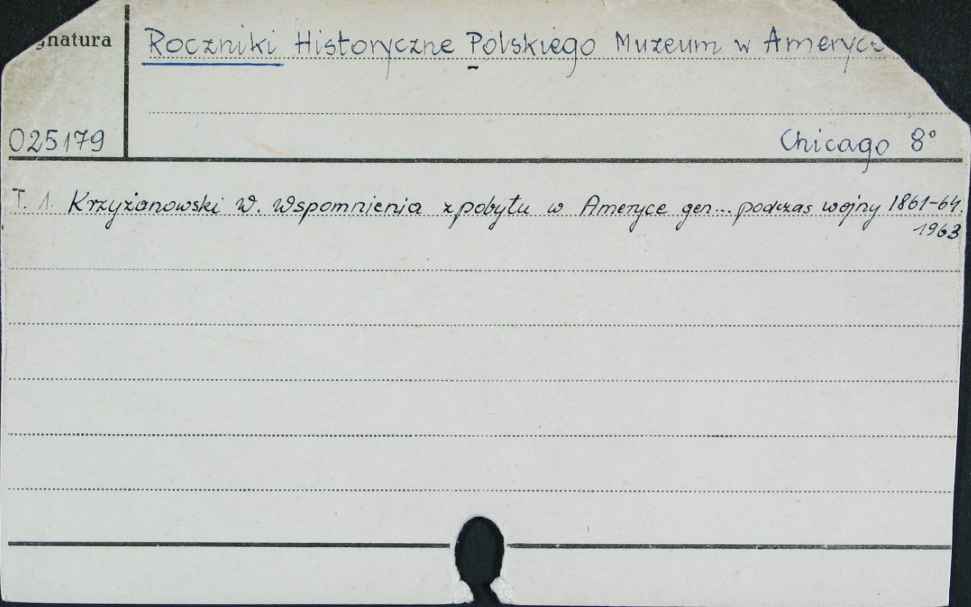 gnatura
Roczniki Historyczne Polskiego Muzeum w Ameryce
025179
Chicago 8°
T. 1. Krzyżanowski W. Wspomnienia z pobytu w Ameryce gen... podczas wojny 1861-64.
1963